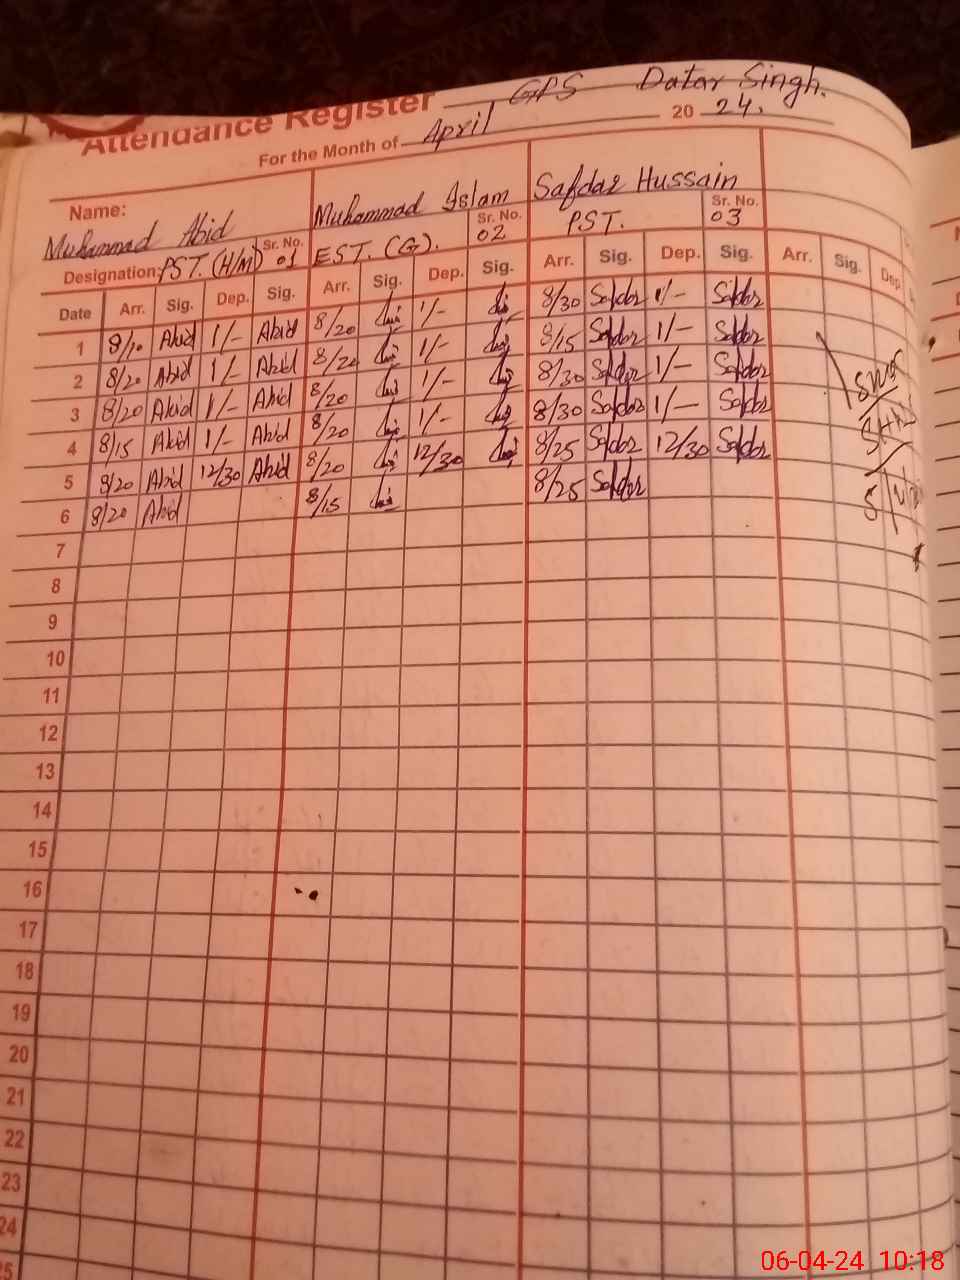 Attendance Register GPS Datar Singh.
For the Month of April 20 24.
Name: Muhammad Abid Muhammad Islam Safdar Hussain
Designation: PST. (H/M) Sr. No. 01 EST. (G). Sr. No. 02 PST. Sr. No. 03
Date Arr. Sig. Dep. Sig. Arr. Sig. Dep. Sig. Arr. Sig. Dep. Sig. Arr. Sig. Dep
1 8/10 Abid 1/- Abid 8/20 1/- 8/30 Safdar 1/- Safdar
2 8/20 Abid 1/- Abid 8/20 1/- 8/15 Safdar 1/- Safdar
3 8/20 Abid 1/- Abid 8/20 1/- 8/30 Safdar 1/- Safdar
4 8/15 Abid 1/- Abid 8/20 1/- 8/30 Safdar 1/- Safdar
5 8/20 Abid 12/30 Abid 8/20 12/30 8/25 Safdar 12/30 Safdar
6 8/20 Abid 8/15 8/25 Safdar
7
8
9
10
11
12
13
14
15
16
17
18
19
20
21
22
23
24
06-04-24 10:18